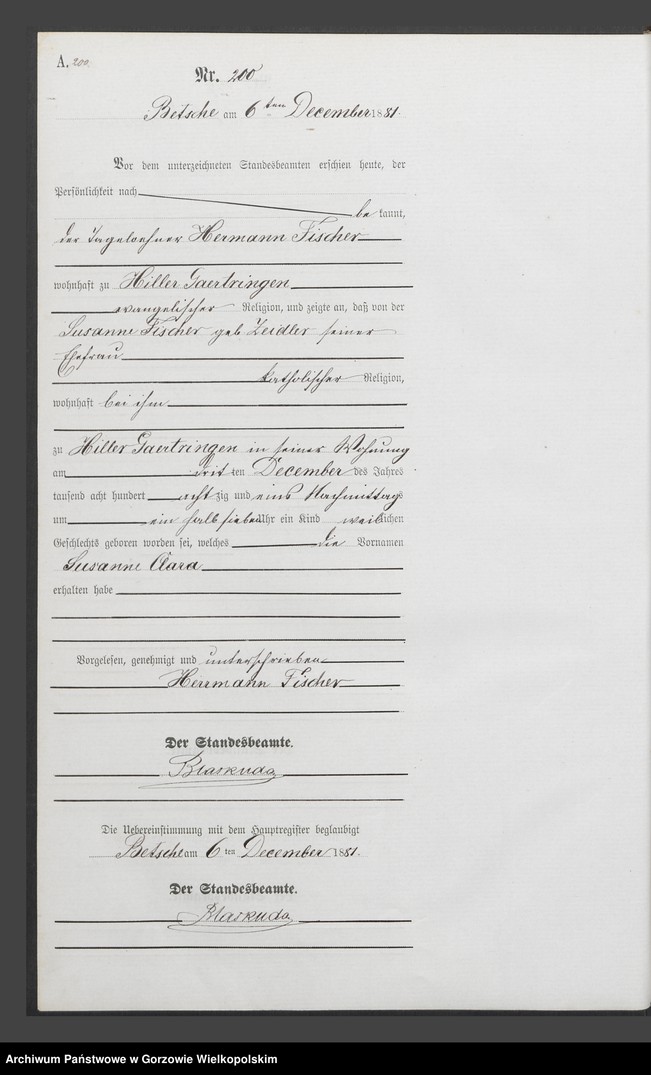 A. 200.
Nr. 200
Betsche am 6ten December 1881.
Vor dem unterzeichneten Standesbeamten erschien heute, der
Persönlichkeit nach
be kannt,
der Tageloehner Hermann Fischer
wohnhaft zu Hiller Gaertringen
evangelischer Religion, und zeigte an, daß von der
Susanne Fischer geb Zeidler seiner
Ehefrau
katholischer Religion,
wohnhaft bei ihm
zu Hiller Gaertringen in seiner Wohnung
am drit ten December des Jahres
tausend acht hundert acht zig und eins Nachmittags
um ein halb sieben Uhr ein Kind weiblichen
Geschlechts geboren worden sei, welches die Vornamen
Susanne Clara
erhalten habe
Vorgelesen, genehmigt und unterschrieben
Herrmann Fischer
Der Standesbeamte.
Blaskuda
Die Uebereinstimmung mit dem Hauptregister beglaubigt
Betsche am 6ten December 1881.
Der Standesbeamte.
Blaskuda
Archiwum Państwowe w Gorzowie Wielkopolskim